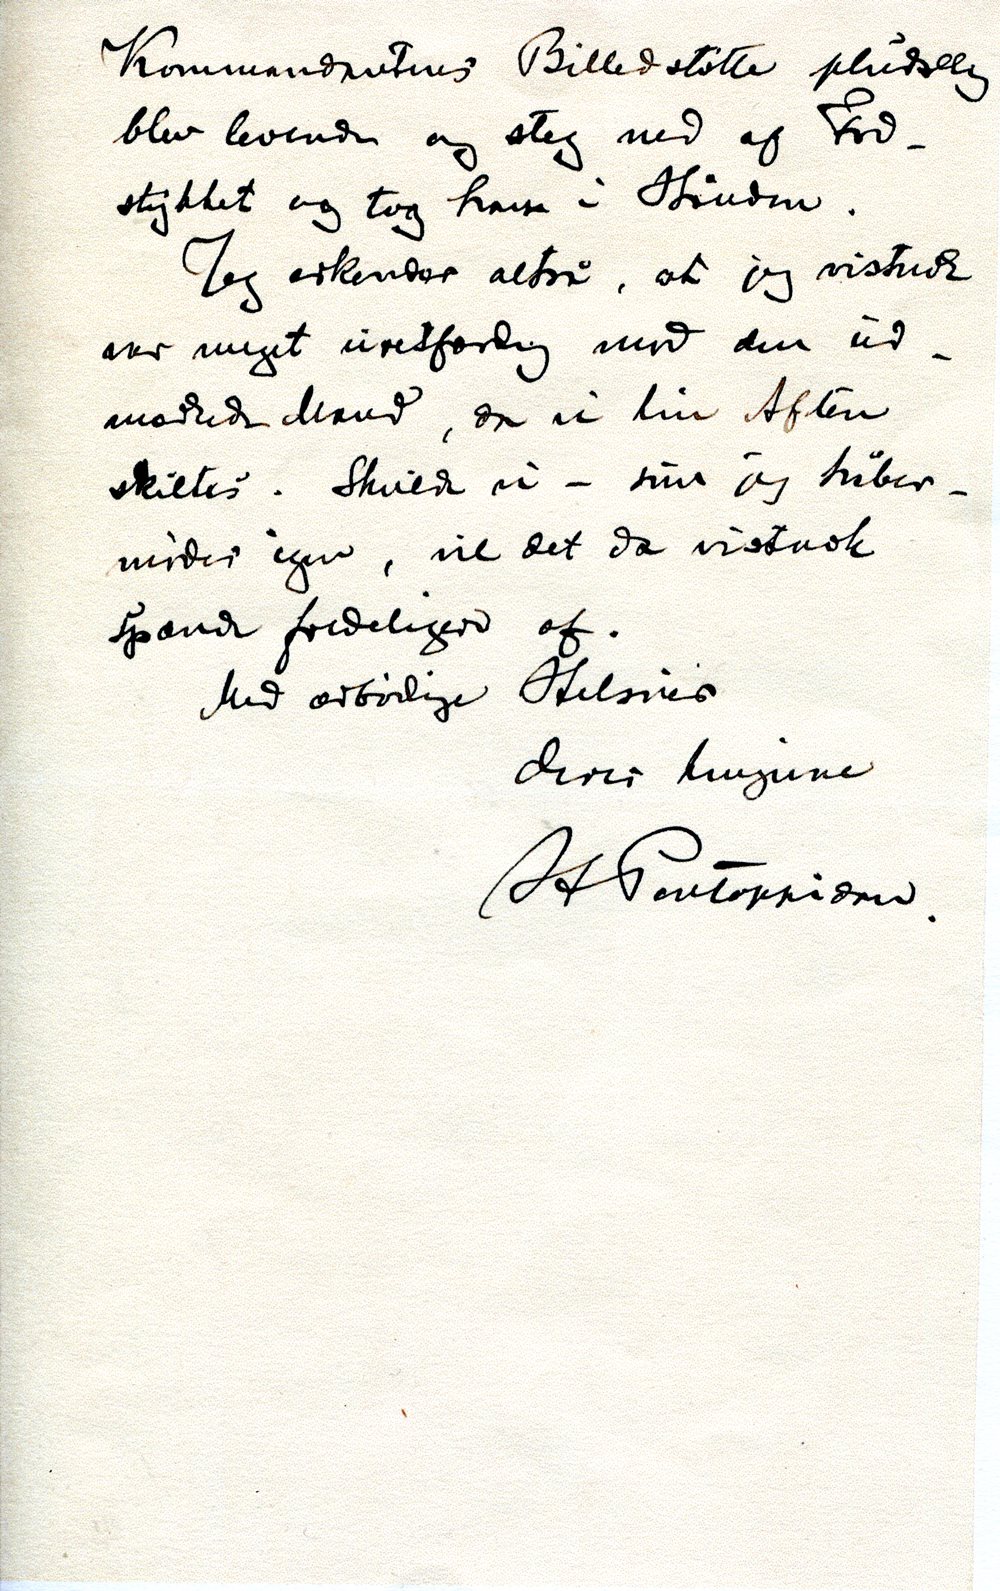 Kommandantens Billedstøtte pludselig
blev levende og steg ned af Fod-
stykket og tog ham i Hånden.
Jeg erkender altså, at jeg vistnok
var meget uretfærdig mod den ud-
mærkede Mand, da vi hin Aften
skiltes. Skulde vi – som jeg håber –
mødes igen, vil det da vistnok
spænde fredeligere af.
Med ærbødige Hilsner
Deres hengivne
H Pontoppidan.